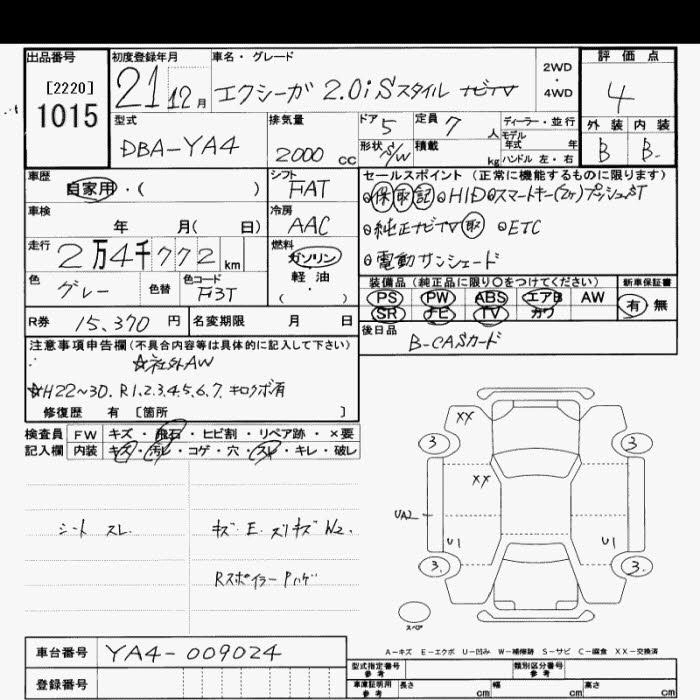 出品番号 初度登録年月 車名・グレード 評価点
[2220]
1015
21 12月 エクシーガ 2.0i Sスタイル ナビTV
2WD
・
4WD
4
外装 内装
B B-
型式 排気量 ドア 5 定員 7 人 ディーラー・並行
DBA-YA4 2000 cc 形状 S/W 積載 kg
モデル年式 年
ハンドル 左・右
車歴 シフト セールスポイント (正常に機能するものに限ります)
自家用・( ) FAT
保 取 記 HID スマートキー(2ケ) プッシュST
車検 冷房
年 月( 日) AAC
純正ナビTV 取 ETC
走行 燃料
2万4千772km ガソリン
電動サンシェード
軽油
・
( )
色 色替 色コード
グレー F3T
装備品 (純正品に限り○をつけてください) 新車保証書
PS PW ABS エアB AW 有・無
SR ナビ TV カワ
R券 15,370 円 名変期限 月 日
後日品
B-CASカード
注意事項申告欄(不具合内容等は具体的に記入して下さい)
☆社外AW
☆H22~30. R1.2.3.4.5.6.7. キロクボ有
修復歴 有 [箇所 ]
検査員 FW キズ・飛石・ヒビ割・リペア跡・×要
記入欄 内装 キズ・汚レ・コゲ・穴・スレ・キレ・破レ
シート スレ
キズ E. スリキズ W2.
Rスポイラー Pハゲ
XX
3 3
XX
UA2
U1 U1
3. 3.
スペア
A-キズ E-エクボ U-凹み W-補修跡 S-サビ C-腐食 XX-交換済
車台番号 YA4-009024
登録番号
型式指定番号 参考 類別区分番号 参考
車庫証明用 参考 長さ cm 幅 cm 高さ cm